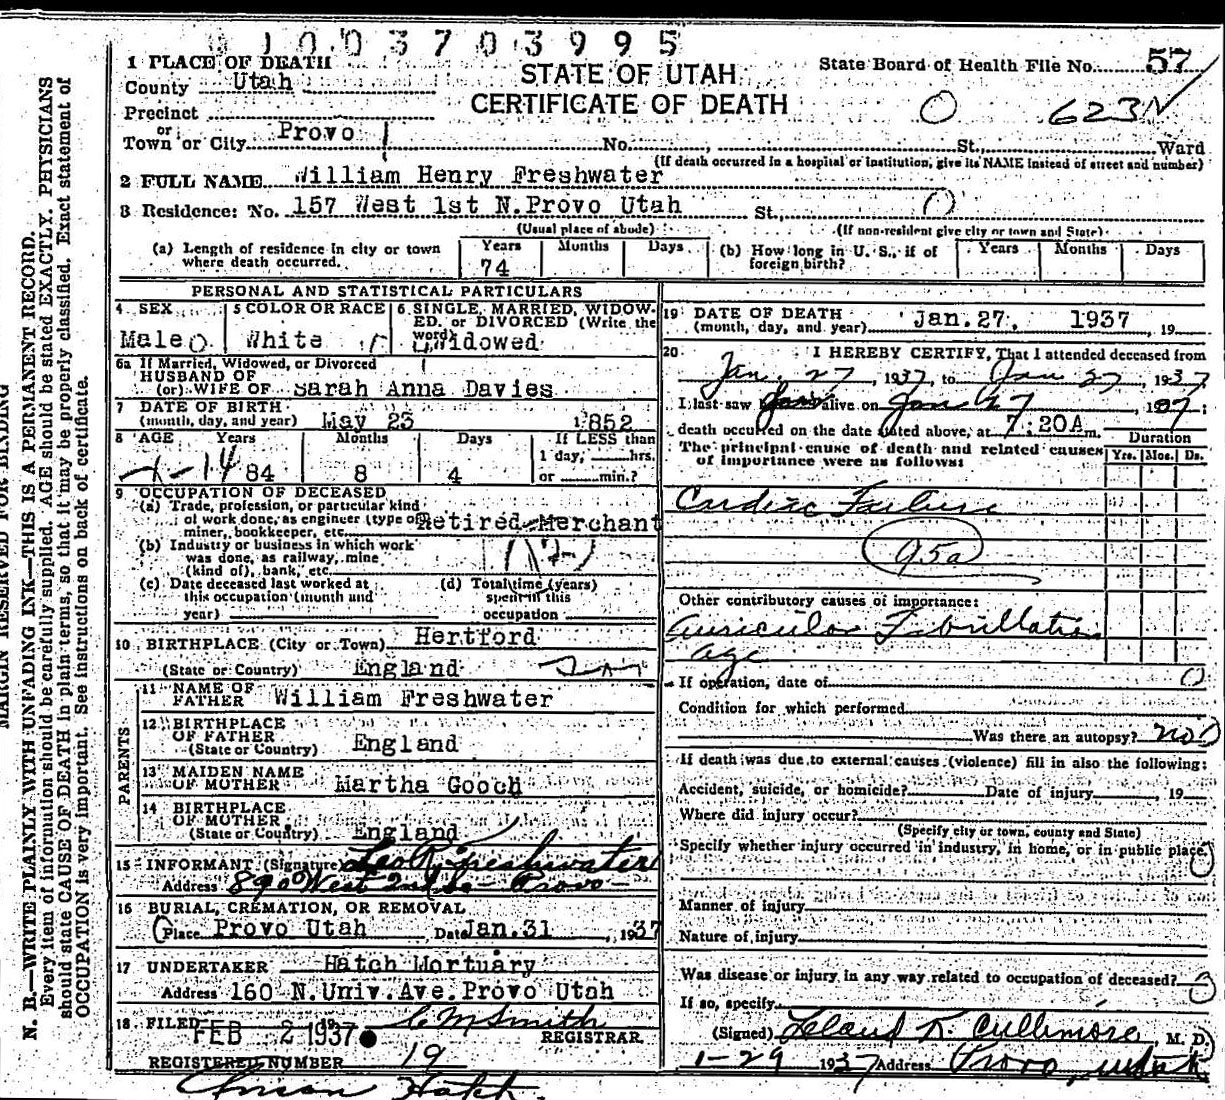 1003703995
1 PLACE OF DEATH
County Utah
Precinct
or
Town or City Provo No. St., Ward
STATE OF UTAH
CERTIFICATE OF DEATH
State Board of Health File No. 57
623
(If death occurred in a hospital or institution, give its NAME instead of street and number)
2 FULL NAME William Henry Freshwater
3 Residence: No. 157 West 1st N. Provo Utah St.,
(Usual place of abode) (If non-resident give city or town and State)
(a) Length of residence in city or town where death occurred. Years 74 Months Days
(b) How long in U. S., if of foreign birth? Years Months Days
PERSONAL AND STATISTICAL PARTICULARS
4 SEX Male
5 COLOR OR RACE White
6 SINGLE, MARRIED, WIDOWED, or DIVORCED (Write the word) Widowed
6a If Married, Widowed, or Divorced
HUSBAND OF
(or) WIFE OF Sarah Anna Davies
7 DATE OF BIRTH
(month, day, and year) May 23 1852
8 AGE Years 84 Months 8 Days 4 If LESS than
1 day, hrs.
or min.?
9 OCCUPATION OF DECEASED
(a) Trade, profession, or particular kind
of work done, as engineer (type of) Retired Merchant
miner, bookkeeper, etc.
(b) Industry or business in which work
was done, as railway, mine
(kind of), bank, etc.
(c) Date deceased last worked at
this occupation (month and
year)
(d) Total time (years)
spent in this
occupation
10 BIRTHPLACE (City or Town) Hertford
(State or Country) England
PARENTS
11 NAME OF
FATHER William Freshwater
12 BIRTHPLACE
OF FATHER
(State or Country) England
13 MAIDEN NAME
OF MOTHER Martha Gooch
14 BIRTHPLACE
OF MOTHER
(State or Country) England
15 INFORMANT (Signature) Leo R. Freshwater
Address 890 West 2nd So - Provo -
16 BURIAL, CREMATION, OR REMOVAL
Place Provo Utah Date Jan. 31, 1937
17 UNDERTAKER Hatch Mortuary
Address 160 N. Univ. Ave. Provo Utah
18 FILED FEB 2 1937 C M Smith
REGISTRAR
REGISTERED NUMBER 19
Anson Hatch
19 DATE OF DEATH
(month, day, and year) Jan. 27, 1937, 19
20 I HEREBY CERTIFY, That I attended deceased from
Jan. 27, 1937, to Jan 27, 1937
I last saw alive on Jan 27, 1937;
death occurred on the date stated above, at 7:20A m.
The principal cause of death and related causes
of importance were as follows:
Duration
Yrs. Mos. Ds.
Cardiac Failure
95a
Other contributory causes of importance:
Auricular Fibrillation
age
If operation, date of
Condition for which performed
Was there an autopsy? no
If death was due to external causes (violence) fill in also the following:
Accident, suicide, or homicide? Date of injury 19
Where did injury occur?
(Specify city or town, county and State)
Specify whether injury occurred in industry, in home, or in public place.
Manner of injury
Nature of injury
Was disease or injury in any way related to occupation of deceased?
If so, specify
(Signed) Leland K. Cullimore, M. D.
1-29 1937 Address Provo, Utah
MARGIN RESERVED FOR BINDING
N. B.—WRITE PLAINLY WITH UNFADING INK—THIS IS A PERMANENT RECORD.
Every item of information should be carefully supplied. AGE should be stated EXACTLY. PHYSICIANS
should state CAUSE OF DEATH in plain terms, so that it may be properly classified. Exact statement of
OCCUPATION is very important. See instructions on back of certificate.